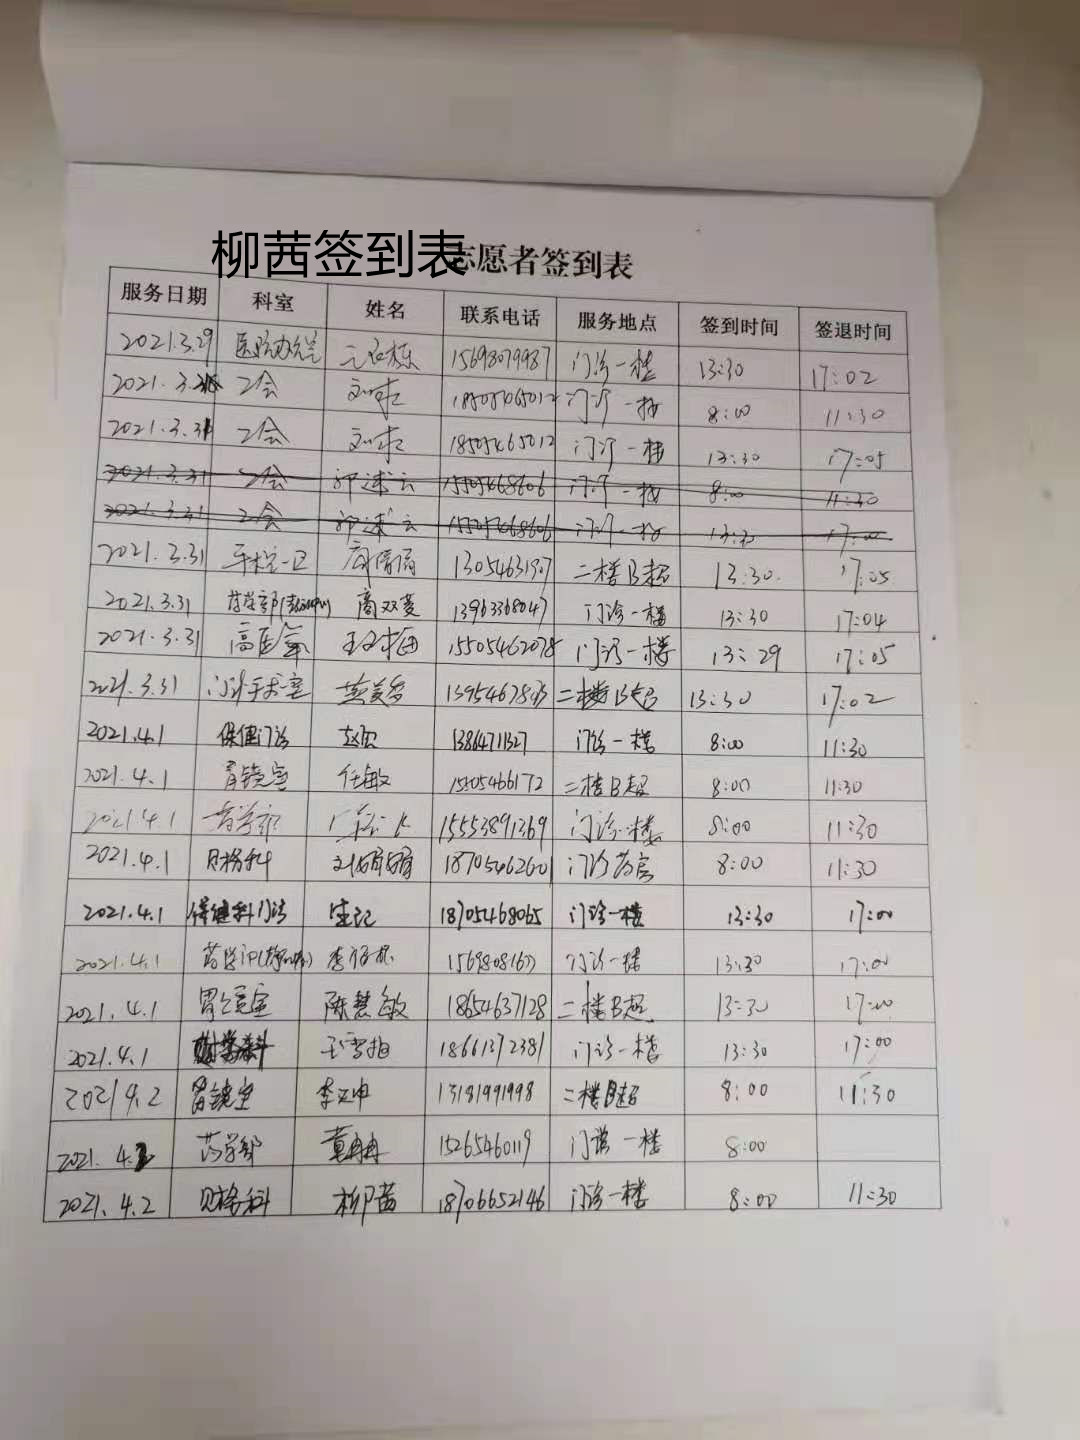 柳茜签到表
志愿者签到表
服务日期 科室 姓名 联系电话 服务地点 签到时间 签退时间
2021.3.29 医院办公室 15698079987 门诊一楼 13:30 17:02
2021.3. 工会 18505465012 门诊一楼 8:00 11:30
2021.3.31 工会 18505465012 门诊一楼 13:30 17:05
2021.3.31 工会 15505468606 门诊一楼 8:00 11:30
2021.3.31 工会 15505468606 门诊一楼 13:30 17:00
2021.3.31 二楼B超 13:30. 17:05
2021.3.31 商双菱 13963368047 门诊一楼 13:30 17:04
2021.3.31 15505462078 门诊一楼 13:29 17:05
2021.3.31 门诊手术室 二楼B超 13:30 17:02
2021.4.1 保健门诊 13864711327 门诊一楼 8:00 11:30
2021.4.1 胃镜室 任敏 15505466172 二楼B超 8:00 11:30
2021.4.1 药学部 15553891369 门诊一楼 8:00 11:30
2021.4.1 财务科 18705462601 门诊药房 8:00 11:30
2021.4.1 保健科门诊 18705468065 门诊一楼 13:30 17:00
2021.4.1 门诊一楼 13:30 17:00
2021.4.1 胃镜室 陈慧敏 18654637128 二楼B超 13:30 17:00
2021.4.1 18661372381 门诊一楼 13:30 17:00
2021 4.2 胃镜室 13181991998 二楼B超 8:00 11:30
2021.4.2 药学部 黄冉冉 15265460119 门诊一楼 8:00
2021.4.2 财务科 柳茜 18706652146 门诊一楼 8:00 11:30